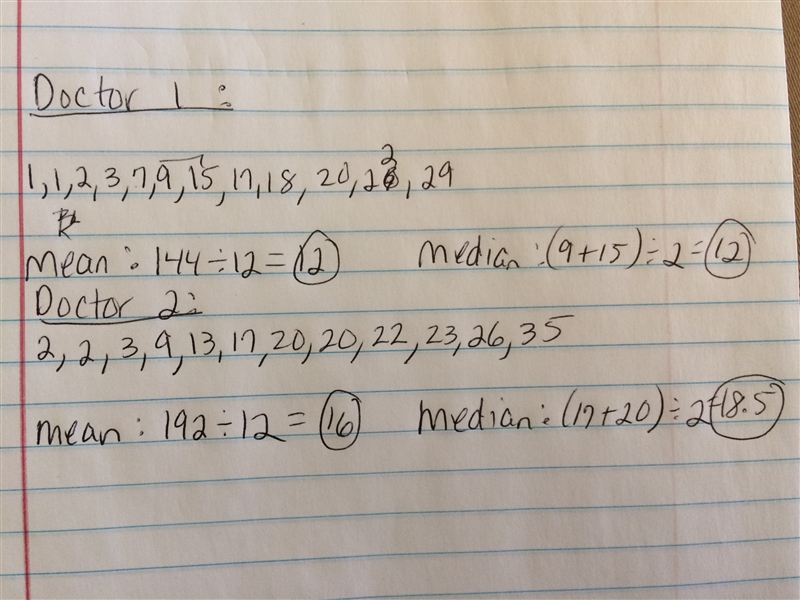 Doctor 1:
1, 1, 2, 3, 7, 9, 15, 17, 18, 20, 22, 29
mean: 144 ÷ 12 = 12 median: (9+15) ÷ 2 = 12
Doctor 2:
2, 2, 3, 9, 13, 17, 20, 20, 22, 23, 26, 35
mean: 192 ÷ 12 = 16 median: (17+20) ÷ 2 = 18.5